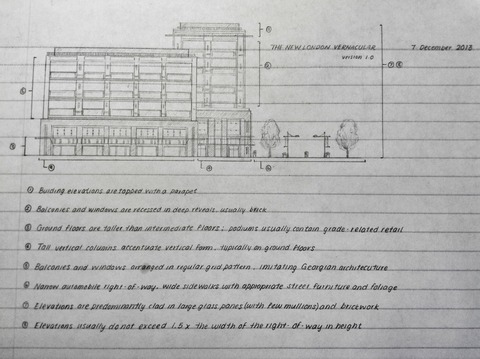 THE NEW LONDON VERNACULAR
7 December 2018
version 1.0
① Building elevations are topped with a parapet
② Balconies and windows are recessed in deep reveals, usually brick
③ Ground floors are taller than intermediate floors; podiums usually contain grade-related retail
④ Tall vertical columns accentuate vertical form, typically on ground floors
⑤ Balconies and windows arranged in regular grid pattern, imitating Georgian architecture
⑥ Narrow automobile right-of-way, wide sidewalks with appropiate street furniture and foliage
⑦ Elevations are predominantly clad in large glass panes (with few mullions) and brickwork
⑧ Elevations usually do not exceed 1.5x the width of the right-of-way in height